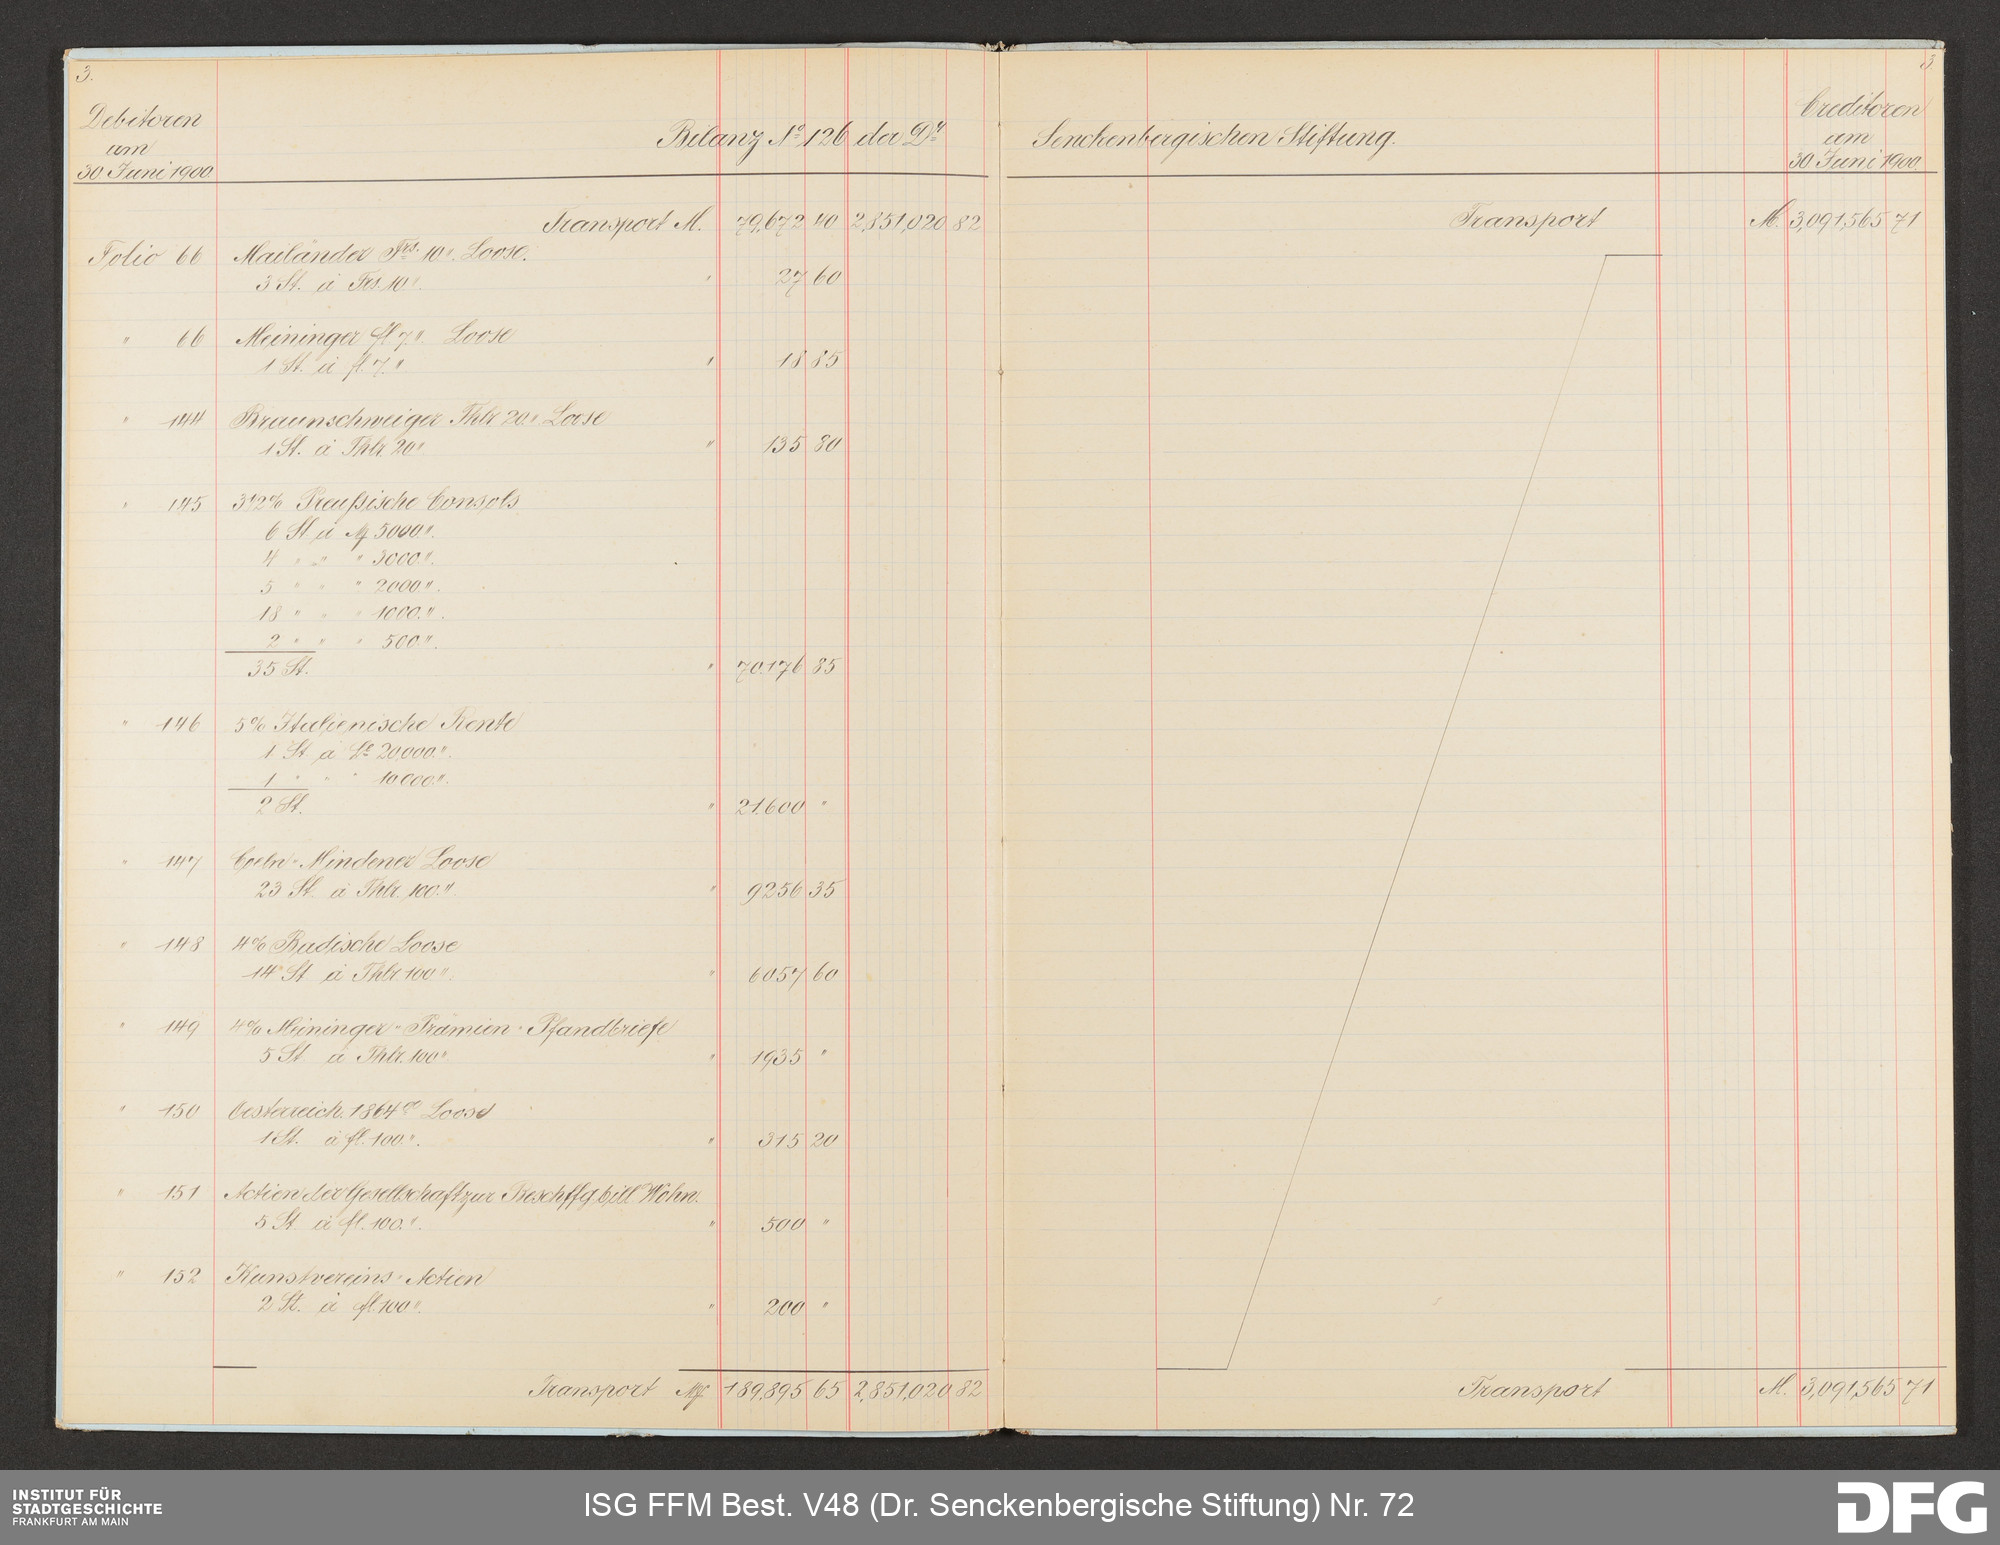 3.
Debitoren
am
30 Juni 1900
Bilanz No. 126 der Dr.
Transport M. 79,672 40 2,851,020 82
Folio 66 Mailänder Frs. 10". Loose.
3 St. à Frs. 10". " 27 60
" 66 Meininger fl 7." Loose
1 St. à fl. 7." " 18 85
" 144 Braunschweiger Thlr 20." Loose
1 St. à Thlr. 20" " 135 80
" 145 3 1/2 % Preußische Consols
6 St. à M 5000.".
4 " " " 3000.".
5 " " " 2000.".
18 " " " 1000.".
2 " " " 500.".
35 St. " 70.176 85
" 146 5% Italienische Rente
1 St à Le 20,000.".
1 " " " 10,000.".
2 St. " 21.600 "
" 147 Coeln-Mindener Loose
23 St. à Thlr. 100." " 9256 35
" 148 4% Badische Loose
14 St à Thlr. 100". " 6057 60
" 149 4% Meininger-Prämien-Pfandbriefe
5 St à Thlr. 100" " 1935 "
" 150 Oesterreich. 1864er Loose
1 St. à fl. 100.". " 315 20
" 151 Actien der Gesellschaft zur Beschffg. bill. Wohn.
5 St. à fl. 100.". " 500 "
" 152 Kunstvereins-Actien
2 St. à fl 100". " 200 "
Transport M 189,895 65 2,851,020 82
3.
Creditoren
am
30 Juni 1900.
Senckenbergischen Stiftung.
Transport M. 3,091,565 71
Transport M. 3,091,565 71
INSTITUT FÜR
STADTGESCHICHTE
FRANKFURT AM MAIN
ISG FFM Best. V48 (Dr. Senckenbergische Stiftung) Nr. 72
DFG